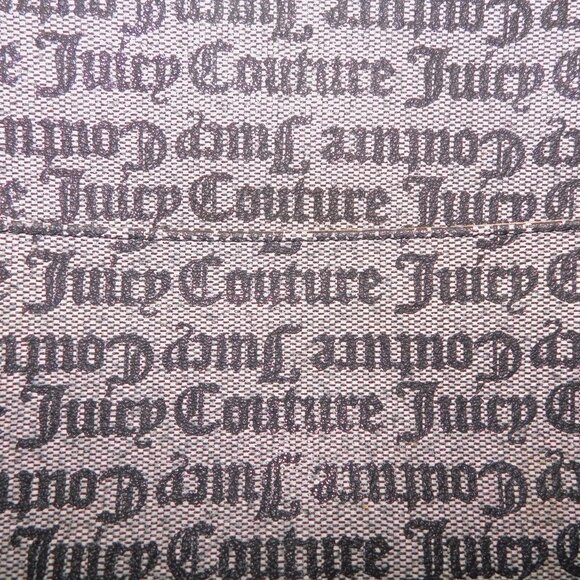 Couture Juicy
Juicy Couture Juicy
Couture Juicy
Juicy Couture Juicy
Juicy Couture Juicy
Couture Juicy
Juicy Couture Juicy
Couture Juicy
Juicy Couture Juicy